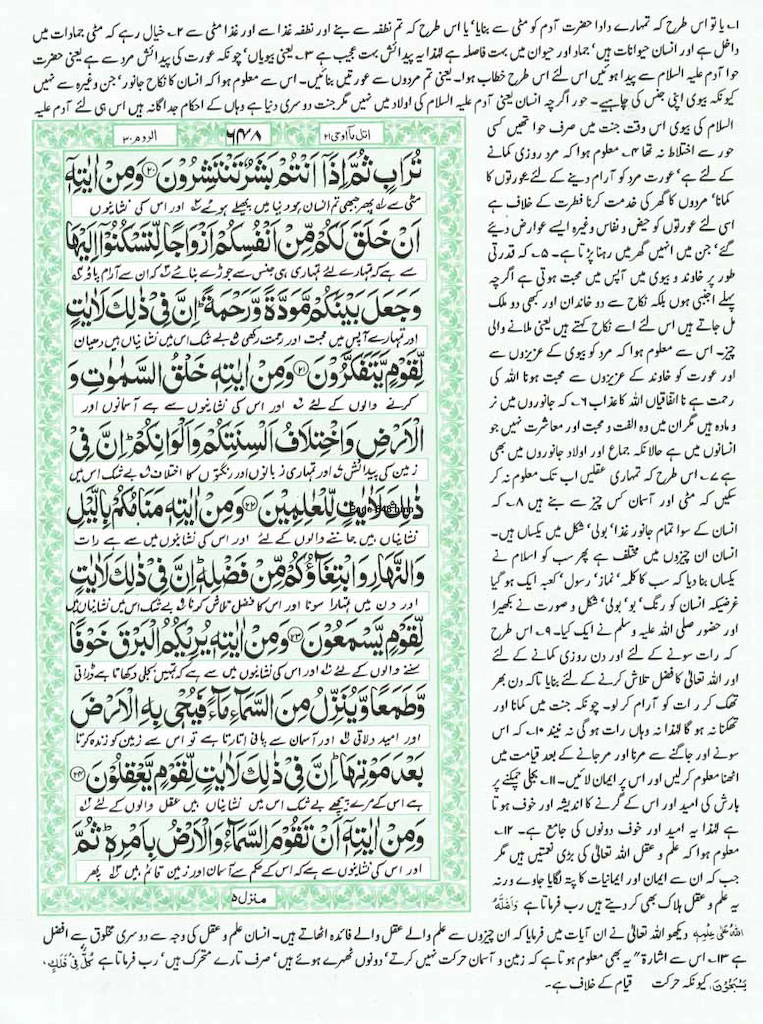 ۱؎ یا تو اس طرح کہ تمہارے دادا حضرت آدم کو مٹی سے بنایا‘ یا اس طرح کہ تم نطفہ سے بنے اور نطفہ غذا سے اور غذا مٹی سے ۲؎ خیال رہے کہ مٹی جمادات میں
داخل ہے اور انسان حیوانات ہیں‘ جماد اور حیوان میں بہت فاصلہ ہے لہٰذا یہ پیدائش بہت عجیب ہے ۳؎ یعنی بیویاں‘ چونکہ عورت کی پیدائش مرد سے ہے یعنی حضرت
حوا آدم علیہ السلام سے پیدا ہوئیں اس لئے اس طرح خطاب ہوا۔ یعنی تم مردوں سے عورتیں بنائیں۔ اس سے معلوم ہوا کہ انسان کا نکاح جانور‘ جن وغیرہ سے نہیں
کیونکہ بیوی اپنی جنس کی چاہیے۔ حور اگرچہ انسان یعنی آدم علیہ السلام کی اولاد میں نہیں مگر جنت دوسری دنیا ہے وہاں کے احکام جداگانہ ہیں اس ہی لئے آدم علیہ
السلام کی بیوی اس وقت جنت میں صرف حوا تھیں کسی
حور سے اختلاط نہ تھا ۴؎ معلوم ہوا کہ مرد روزی کمانے
کے لئے ہے‘ عورت مرد کو آرام دینے کے لئے عورتوں کا
کمانا‘ مردوں کا گھر کی خدمت کرنا فطرت کے خلاف ہے
اسی لئے عورتوں کو حیض و نفاس وغیرہ ایسے عوارض دیئے
گئے‘ جن میں انہیں گھر میں رہنا پڑتا ہے۔ ۵؎ کہ قدرتی
طور پر خاوند و بیوی میں آپس میں محبت ہوتی ہے اگرچہ
پہلے اجنبی ہوں بلکہ نکاح سے دو خاندان اور کبھی دو ملک
مل جاتے ہیں اس لئے اسے نکاح کہتے ہیں یعنی ملانے والی
چیز۔ اس سے معلوم ہوا کہ مرد کو بیوی کے عزیزوں سے
اور عورت کو خاوند کے عزیزوں سے محبت ہونا اللہ کی
رحمت ہے نا اتفاقیاں اللہ کا عذاب ۶؎ کہ جانوروں میں نر
و مادہ ہیں مگر ان میں وہ الفت و محبت اور معاشرت نہیں جو
انسانوں میں ہے حالانکہ جماع اور اولاد جانوروں میں بھی
ہے ۷؎ اس طرح کہ تمہاری عقلیں اب تک معلوم نہ کر
سکیں کہ مٹی اور آسمان کس چیز سے بنے ہیں ۸؎ کہ
انسان کے سوا تمام جانور غذا‘ بولی‘ شکل میں یکساں ہیں۔
انسان ان چیزوں میں مختلف ہے پھر سب کو اسلام نے
یکساں بنا دیا کہ سب کا کلمہ‘ نماز‘ رسول‘ کعبہ ایک ہو گیا
غرضیکہ انسان کو رنگ‘ بو‘ بولی‘ شکل و صورت نے بکھیرا
اور حضور صلی اللہ علیہ وسلم نے ایک کیا۔ ۹؎ اس طرح
کہ رات سونے کے لئے اور دن روزی کمانے کے لئے
اور اللہ تعالیٰ کا فضل تلاش کرنے کے لئے بنایا تاکہ دن بھر
تھک کر رات کو آرام کر لو۔ چونکہ جنت میں کمانا اور
تھکنا نہ ہو گا لہٰذا نہ وہاں رات ہو گی نہ نیند ۱۰؎ کہ اس
سونے اور جاگنے سے مرنا اور مر جانے کے بعد قیامت میں
اٹھنا معلوم کرلیں اور اس پر ایمان لائیں۔ ۱۱؎ بجلی چمکنے پر
بارش کی امید اور اس کے گرنے کا اندیشہ اور خوف ہوتا
ہے لہٰذا یہ امید اور خوف دونوں کی جامع ہے۔ ۱۲؎
معلوم ہوا کہ علم و عقل اللہ تعالیٰ کی بڑی نعمتیں ہیں مگر
جب کہ ان سے ایمان اور ایمانیات کا پتہ لگایا جاوے ورنہ
یہ علم و عقل ہلاک بھی کر دیتے ہیں رب فرماتا ہے وَاَضَلَّهُ
اتل مآ اوحی ۲۱
۶۴۸
الروم ۳۰
تُرَابٍ ثُمَّ اِذَاۤ اَنْتُمْ بَشَرٌ تَنْتَشِرُوْنَ ۝۲۰ وَمِنْ اٰیٰتِهٖۤ
مٹی سے پھر جبھی تم انسان ہو دنیا میں پھیلے ہوئے اور اس کی نشانیوں
اَنْ خَلَقَ لَكُمْ مِّنْ اَنْفُسِكُمْ اَزْوَاجًا لِّتَسْكُنُوْۤا اِلَیْهَا
سے ہے کہ تمہارے لئے تمہاری ہی جنس سے جوڑے بنائے کہ ان سے آرام پاؤ
وَ جَعَلَ بَیْنَكُمْ مَّوَدَّةً وَّ رَحْمَةً ؕ اِنَّ فِیْ ذٰلِكَ لَاٰیٰتٍ
اور تمہارے آپس میں محبت اور رحمت رکھی بے شک اس میں نشانیاں ہیں دھیان
لِّقَوْمٍ یَّتَفَكَّرُوْنَ ۝۲۱ وَمِنْ اٰیٰتِهٖ خَلْقُ السَّمٰوٰتِ وَ
کرنے والوں کے لئے اور اس کی نشانیوں سے ہے آسمانوں اور
الْاَرْضِ وَاخْتِلَافُ اَلْسِنَتِكُمْ وَاَلْوَانِكُمْ ؕ اِنَّ فِیْ
زمین کی پیدائش اور تمہاری زبانوں اور رنگتوں کا اختلاف بے شک اس میں
ذٰلِكَ لَاٰیٰتٍ لِّلْعٰلِمِیْنَ ۝۲۲ وَمِنْ اٰیٰتِهٖ مَنَامُكُمْ بِالَّیْلِ
Page-648.bmp
نشانیاں ہیں جاننے والوں کے لئے اور اس کی نشانیوں میں سے ہے رات
وَالنَّهَارِ وَابْتِغَآؤُكُمْ مِّنْ فَضْلِهٖ ؕ اِنَّ فِیْ ذٰلِكَ لَاٰیٰتٍ
اور دن میں تمہارا سونا اور اس کا فضل تلاش کرنا بے شک اس میں نشانیاں ہیں
لِّقَوْمٍ یَّسْمَعُوْنَ ۝۲۳ وَمِنْ اٰیٰتِهٖ یُرِیْكُمُ الْبَرْقَ خَوْفًا
سننے والوں کے لئے اور اس کی نشانیوں میں سے ہے کہ تمہیں بجلی دکھاتا ہے ڈراتی
وَّ طَمَعًا وَّ یُنَزِّلُ مِنَ السَّمَآءِ مَآءً فَیُحْیٖ بِهِ الْاَرْضَ
اور امید دلاتی اور آسمان سے پانی اتارتا ہے تو اس سے زمین کو زندہ کرتا
بَعْدَ مَوْتِهَا ؕ اِنَّ فِیْ ذٰلِكَ لَاٰیٰتٍ لِّقَوْمٍ یَّعْقِلُوْنَ ۝۲۴
ہے اس کے مرے پیچھے بے شک اس میں نشانیاں ہیں عقل والوں کے لئے
وَمِنْ اٰیٰتِهٖۤ اَنْ تَقُوْمَ السَّمَآءُ وَالْاَرْضُ بِاَمْرِهٖ ؕ ثُمَّ
اور اس کی نشانیوں سے ہے کہ اس کے حکم سے آسمان اور زمین قائم ہیں پھر
منزل ۵
اللّٰهُ عَلٰی عِلْمٍ دیکھو اللہ تعالیٰ نے ان آیات میں فرمایا کہ ان چیزوں سے علم والے عقل والے فائدہ اٹھاتے ہیں۔ انسان علم و عقل کی وجہ سے دوسری مخلوق سے افضل
ہے ۱۳؎ اس سے اشارۃً یہ بھی معلوم ہوتا ہے کہ زمین و آسمان حرکت نہیں کرتے‘ دونوں ٹھہرے ہوئے ہیں‘ صرف تارے متحرک ہیں‘ رب فرماتا ہے كُلٌّ فِیْ فَلَكٍ
یَّسْبَحُوْنَ کیونکہ حرکت قیام کے خلاف ہے۔